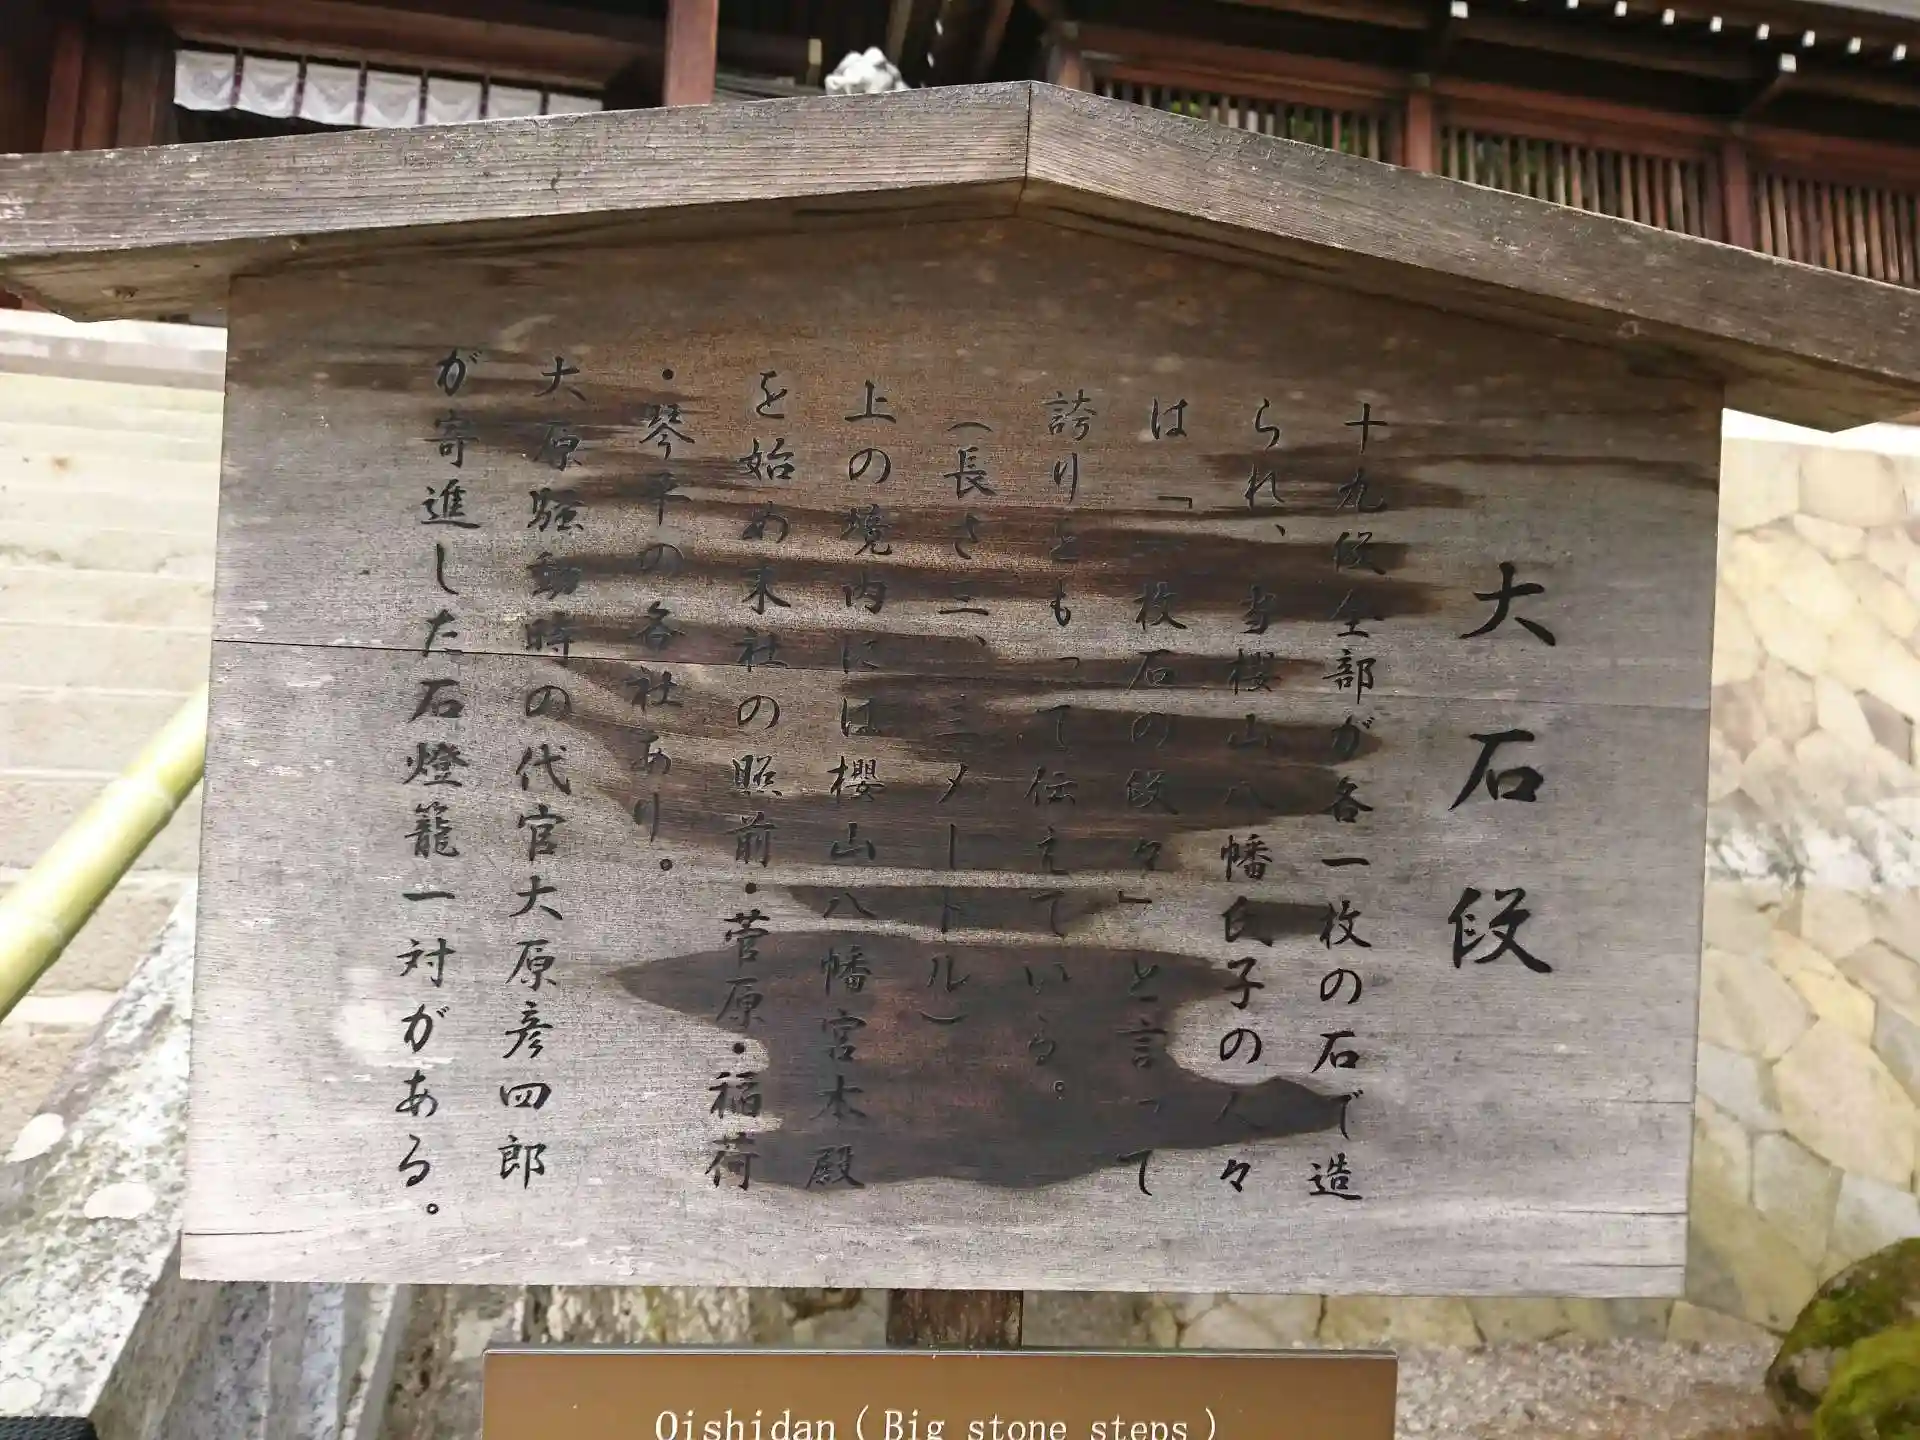 大石段
十九段全部が各一枚の石で造
られ、当櫻山八幡氏子の人々
は「一枚石の段々」と言って
誇りともって伝えている。
(長さ二、三メートル)
上の境内には櫻山八幡宮本殿
を始め末社の照前・菅原・福荷
・琴平の各社あり。
大原騒動時の代官大原彦四郎
が寄進した石燈籠一対がある。
Oishidan (Big stone steps)